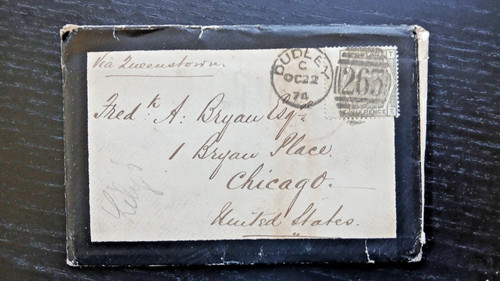 Via Queenstown.
DUDLEY
C
OC 22
74
263
Fredk A. Bryan Esqr
1 Bryan Place.
Chicago.
United States.